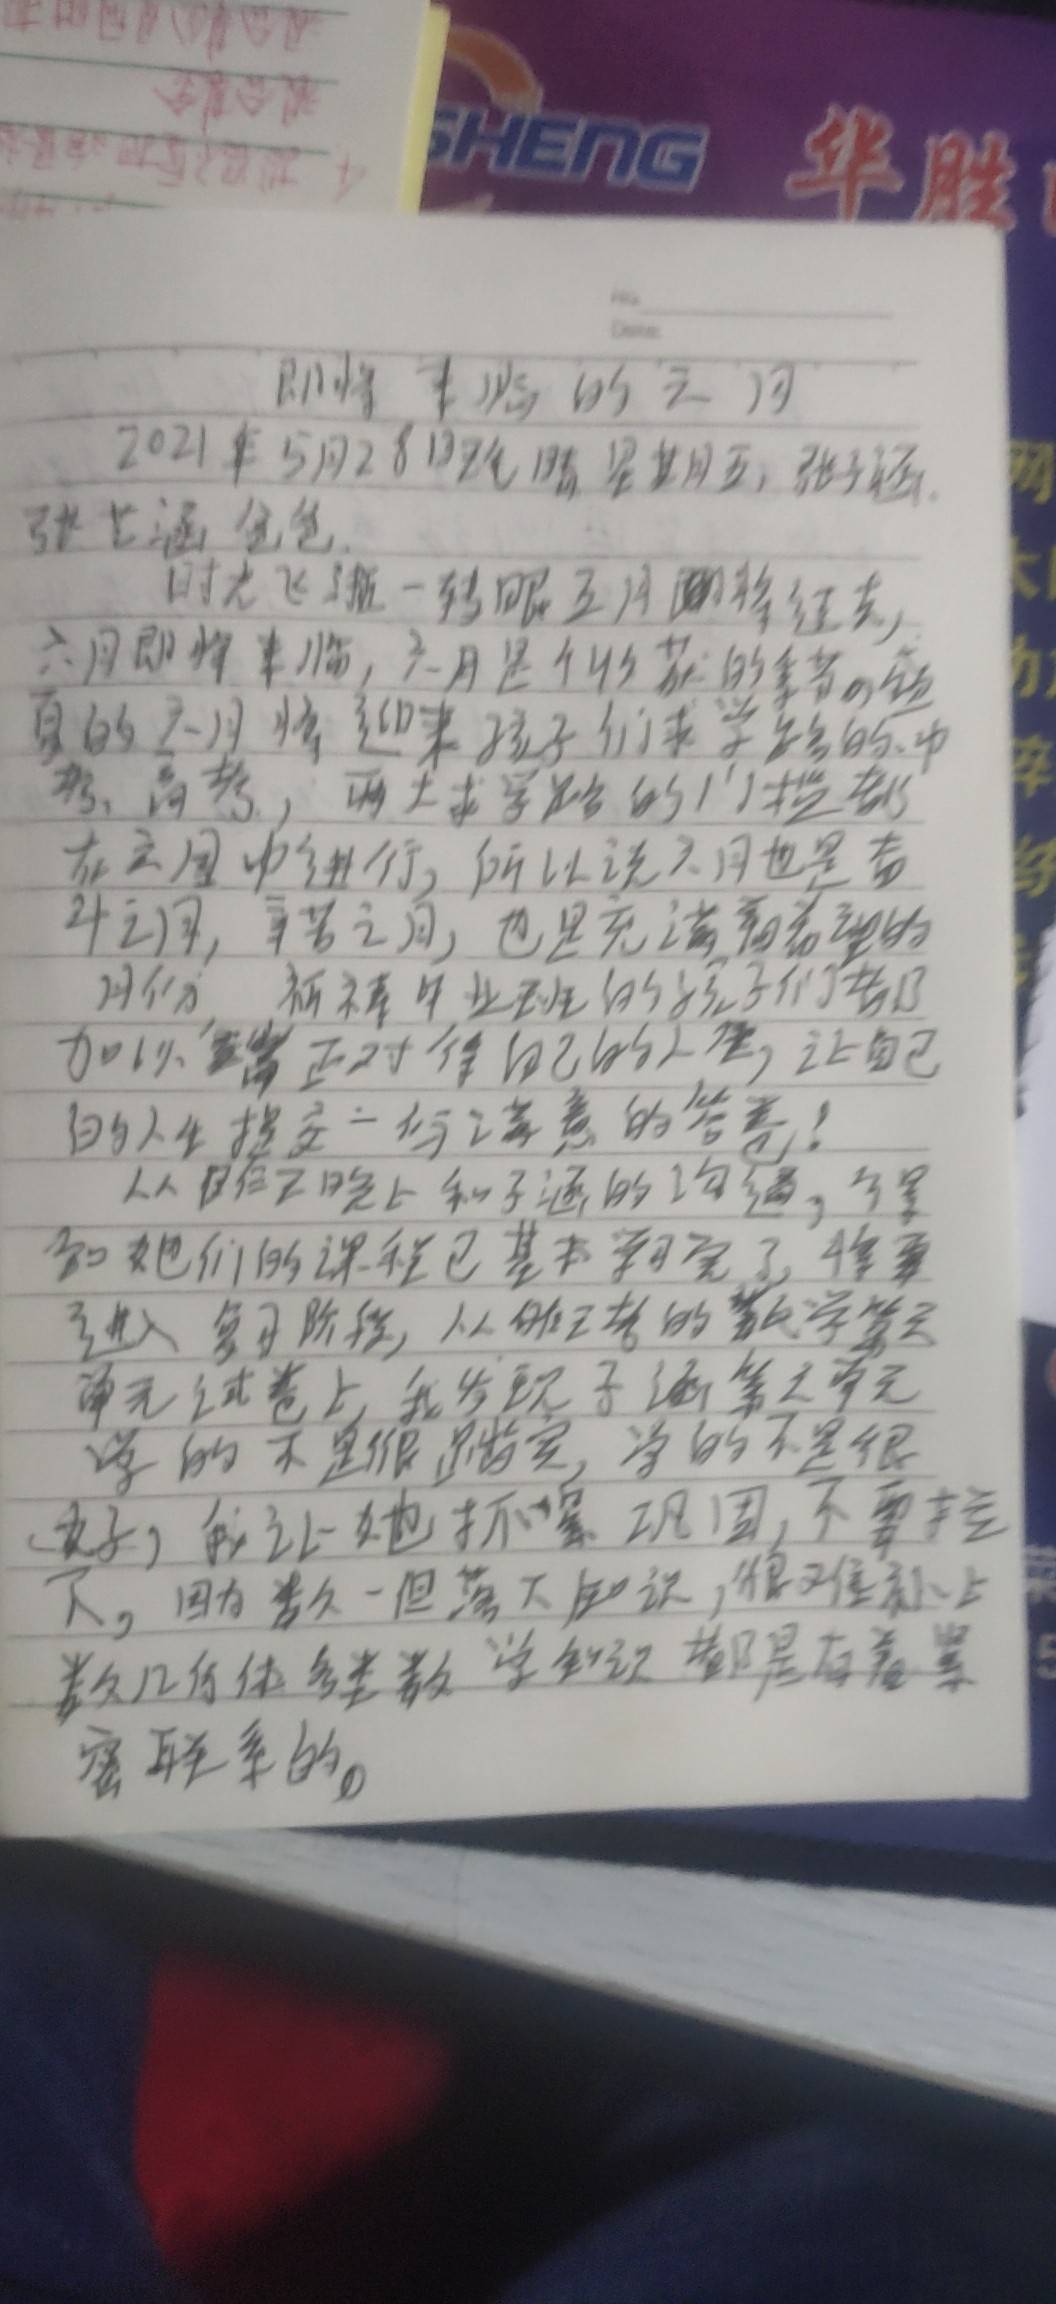 SHENG
华胜
No.
Date.
即将来临的六月
2021年5月28日 晴 星期五，张子涵
张艺涵 爸爸
时光飞逝一转眼五月即将过去，
六月即将来临，六月是个收获的季节。
夏的六月将迎来孩子们求学路的中
考、高考，两大求学路的门槛都
在六月中进行，所以说六月也是奋
斗之月，辛苦之月，也是充满希望的
月份 祈祷毕业班的孩子们都
加以 正对待自己的人生，让自己
的人生提交一份满意的答卷！
从昨天晚上和子涵的沟通，
知她们的课程已基本学习完了，将要
进入复习阶段，从昨天考的数学第六
单元试卷上，我发现子涵第六单元
学的不是很踏实，学的不是很
好，我让她抓紧巩固，不要拉
下，因为数久一但落下知识，很难补上
数几何体各类数学知识都是有着紧
密联系的。